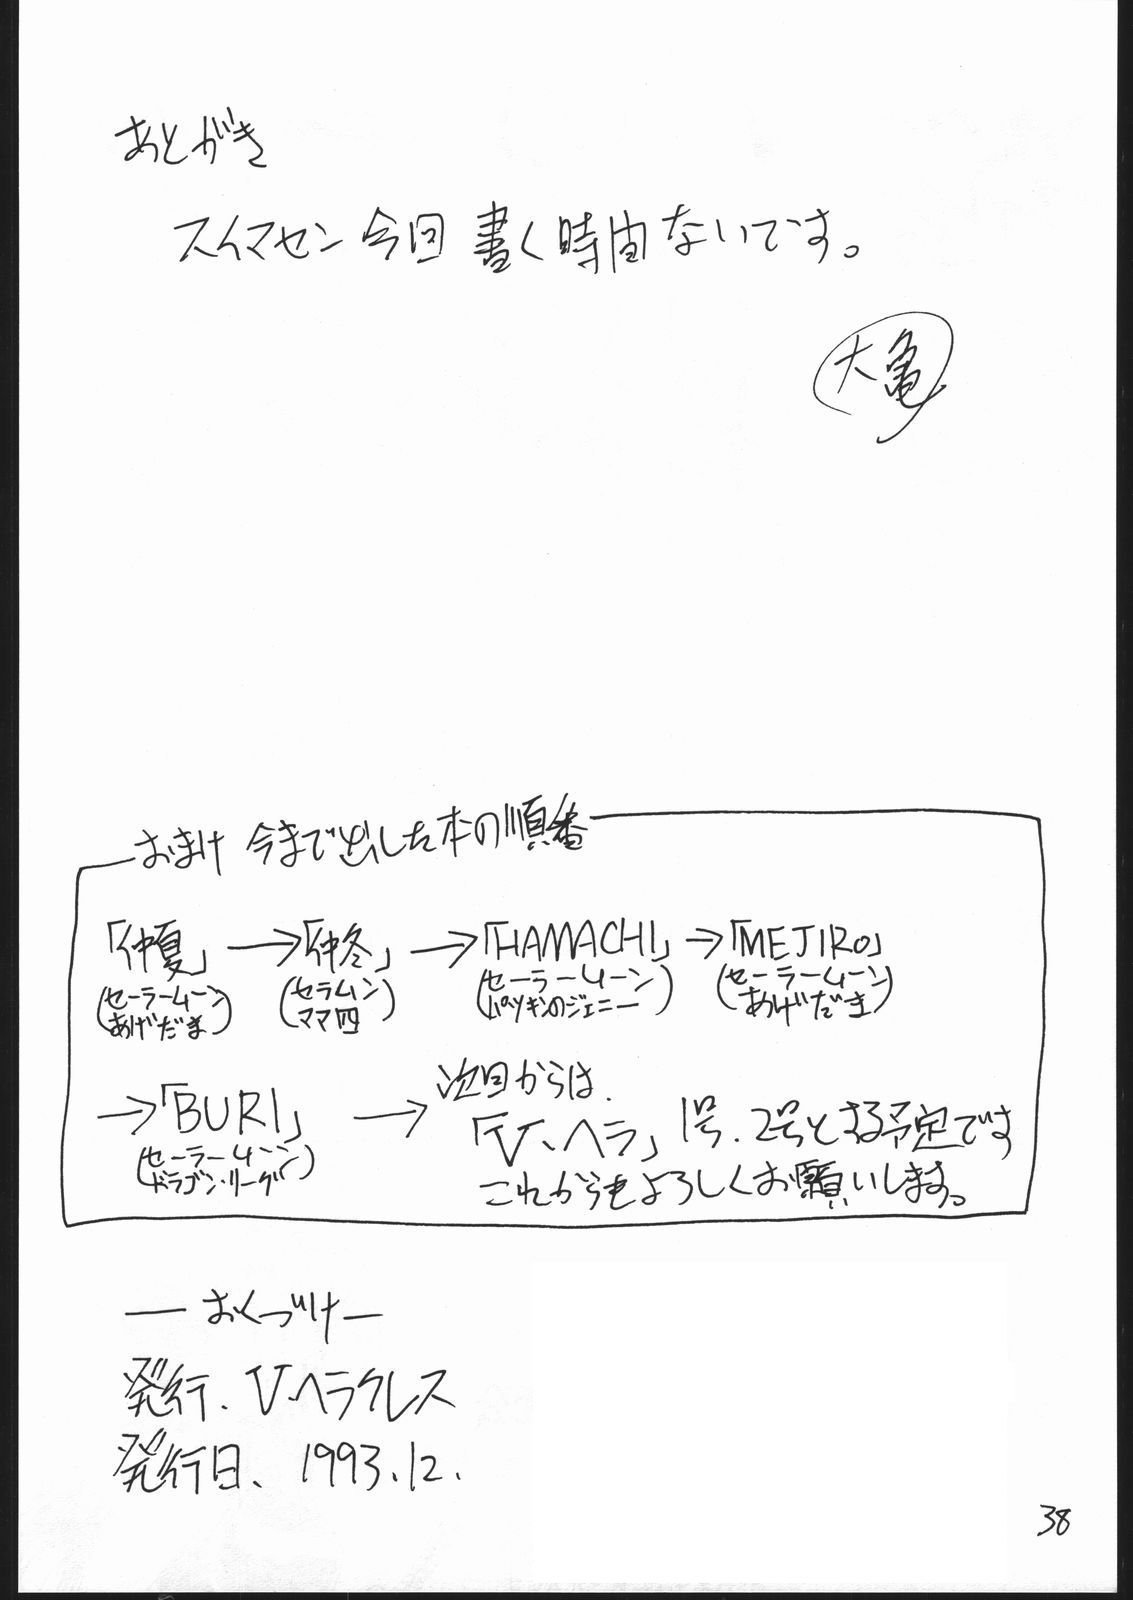 あとがき
スイマセン今回書く時間ないです。
大亀
おまけ 今まで出した本の順番
「仲夏」→「仲冬」→「HAMACHI」→「MEJIRO」
(セーラームーン あげだま) (セラムン ママ四) (セーラームーン パツキンのジェニー) (セーラームーン あげだま)
→「BURI」 → 次回からは、
(セーラームーン ドラゴン・リーグ) 「V、ヘラ」1号、2号とする予定です
これからもよろしくお願いします。
― おくづけ ―
発行、V、ヘラクレス
発行日、1993.12.
38